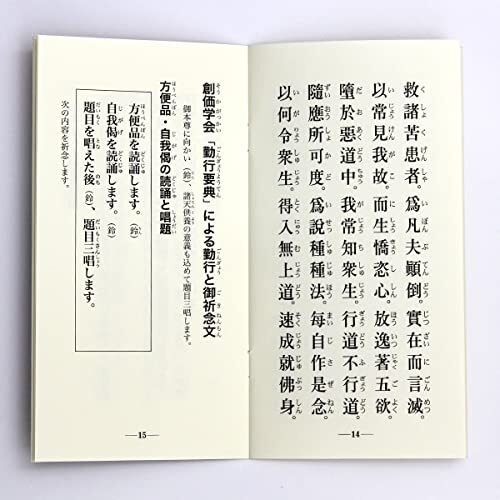 救諸苦患者。爲凡夫顚倒。實在而言滅。
以常見我故。而生憍恣心。放逸著五欲。
墮於惡道中。我常知衆生。行道不行道。
隨應所可度。爲說種種法。每自作是念。
以何令衆生。得入無上道。速成就佛身。
—14—
創価学会「勤行要典」による勤行と御祈念文
方便品・自我偈の読誦と唱題
御本尊に向かい(鈴)、諸天供養の意義も込めて題目三唱します。
方便品を読誦します。(鈴)
自我偈を読誦します。(鈴)
題目を唱えた後(鈴)、題目三唱します。
次の内容を祈念します。
—15—